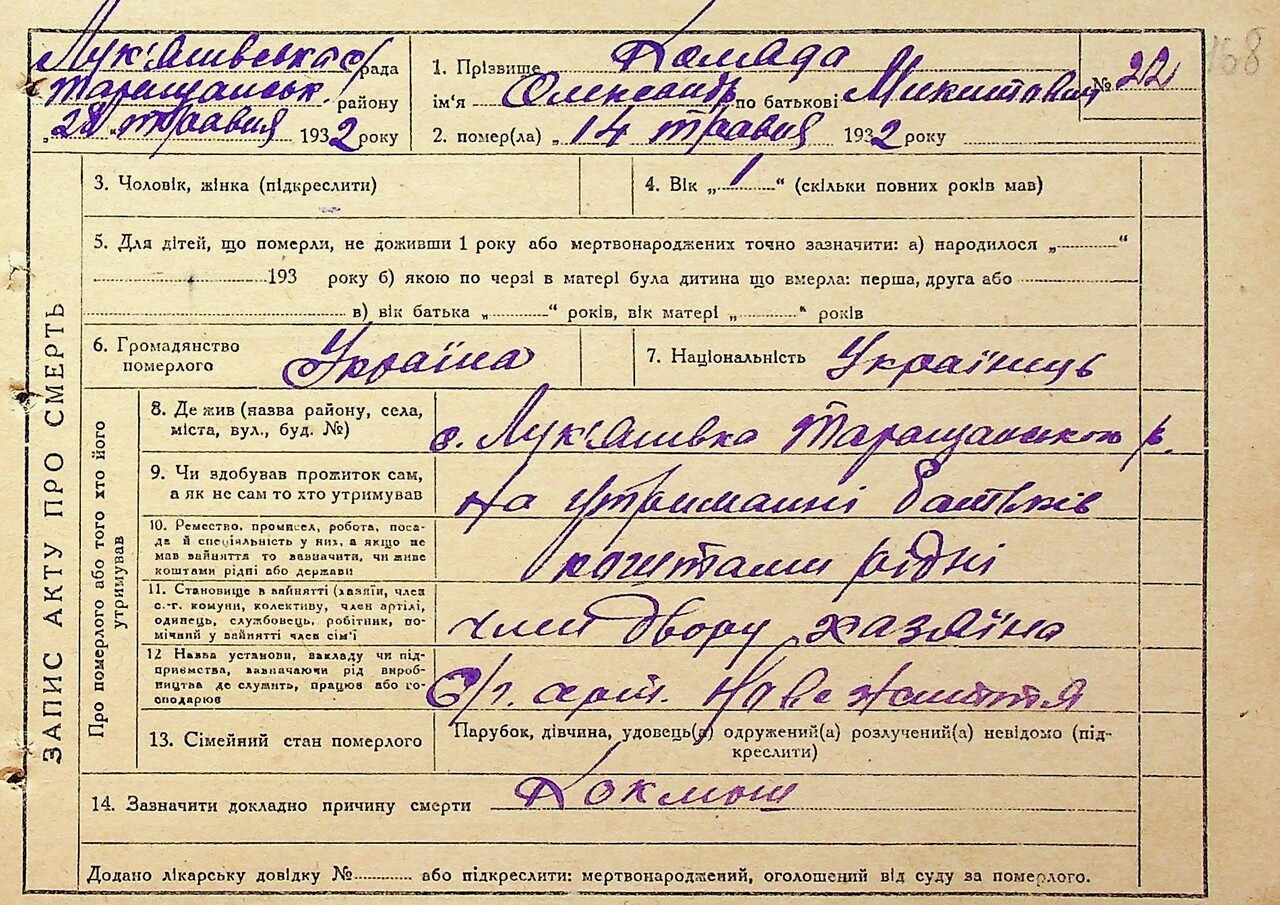 168
Лук'яшівська с/рада
Таращанськ. району
„28" травня 1932 року
1. Прізвище Комада
№ 22
ім'я Олександр по батькові Микитович
2. помер(ла) „14 травня 1932 року
3. Чоловік, жінка (підкреслити)
4. Вік „1“ (скільки повних років мав)
5. Для дітей, що померли, не доживши 1 року або мертвонароджених точно зазначити: а) народилося „ “
193 року б) якою по черзі в матері була дитина що вмерла: перша, друга або
в) вік батька „ “ років, вік матері „ “ років
6. Громадянство померлого Україна
7. Національність Українець
ЗАПИС АКТУ ПРО СМЕРТЬ
Про померлого або того хто його утримував
8. Де жив (назва району, села, міста, вул., буд. №)
с. Лук'яшівка Таращанського р.
9. Чи здобував прожиток сам, а як не сам то хто утримував
на утриманні батьків
10. Ремество, промисел, робота, поса-
да й спеціяльність у них, а якщо не
мав зайняття то зазначити, чи живе
коштами рідні або держави
коштами рідні
11. Становище в зайнятті (хазяїн, член
с.-г. комуни, колективу, член артілі,
одинець, службовець, робітник, по-
мічний у зайнятті член сім'ї
член двору хазяїна
12 Назва установи, закладу чи під-
приємства, зазначаючи рід вироб-
ництва де служить, працює або го-
сподарює
С/г. арт. Нове життя
13. Сімейний стан померлого
Парубок, дівчина, удовець(а) одружений(а) розлучений(а) невідомо (під-
креслити)
14. Зазначити докладно причину смерти Кокмош
Додано лікарську довідку № або підкреслити: мертвонароджений, оголошений від суду за померлого.